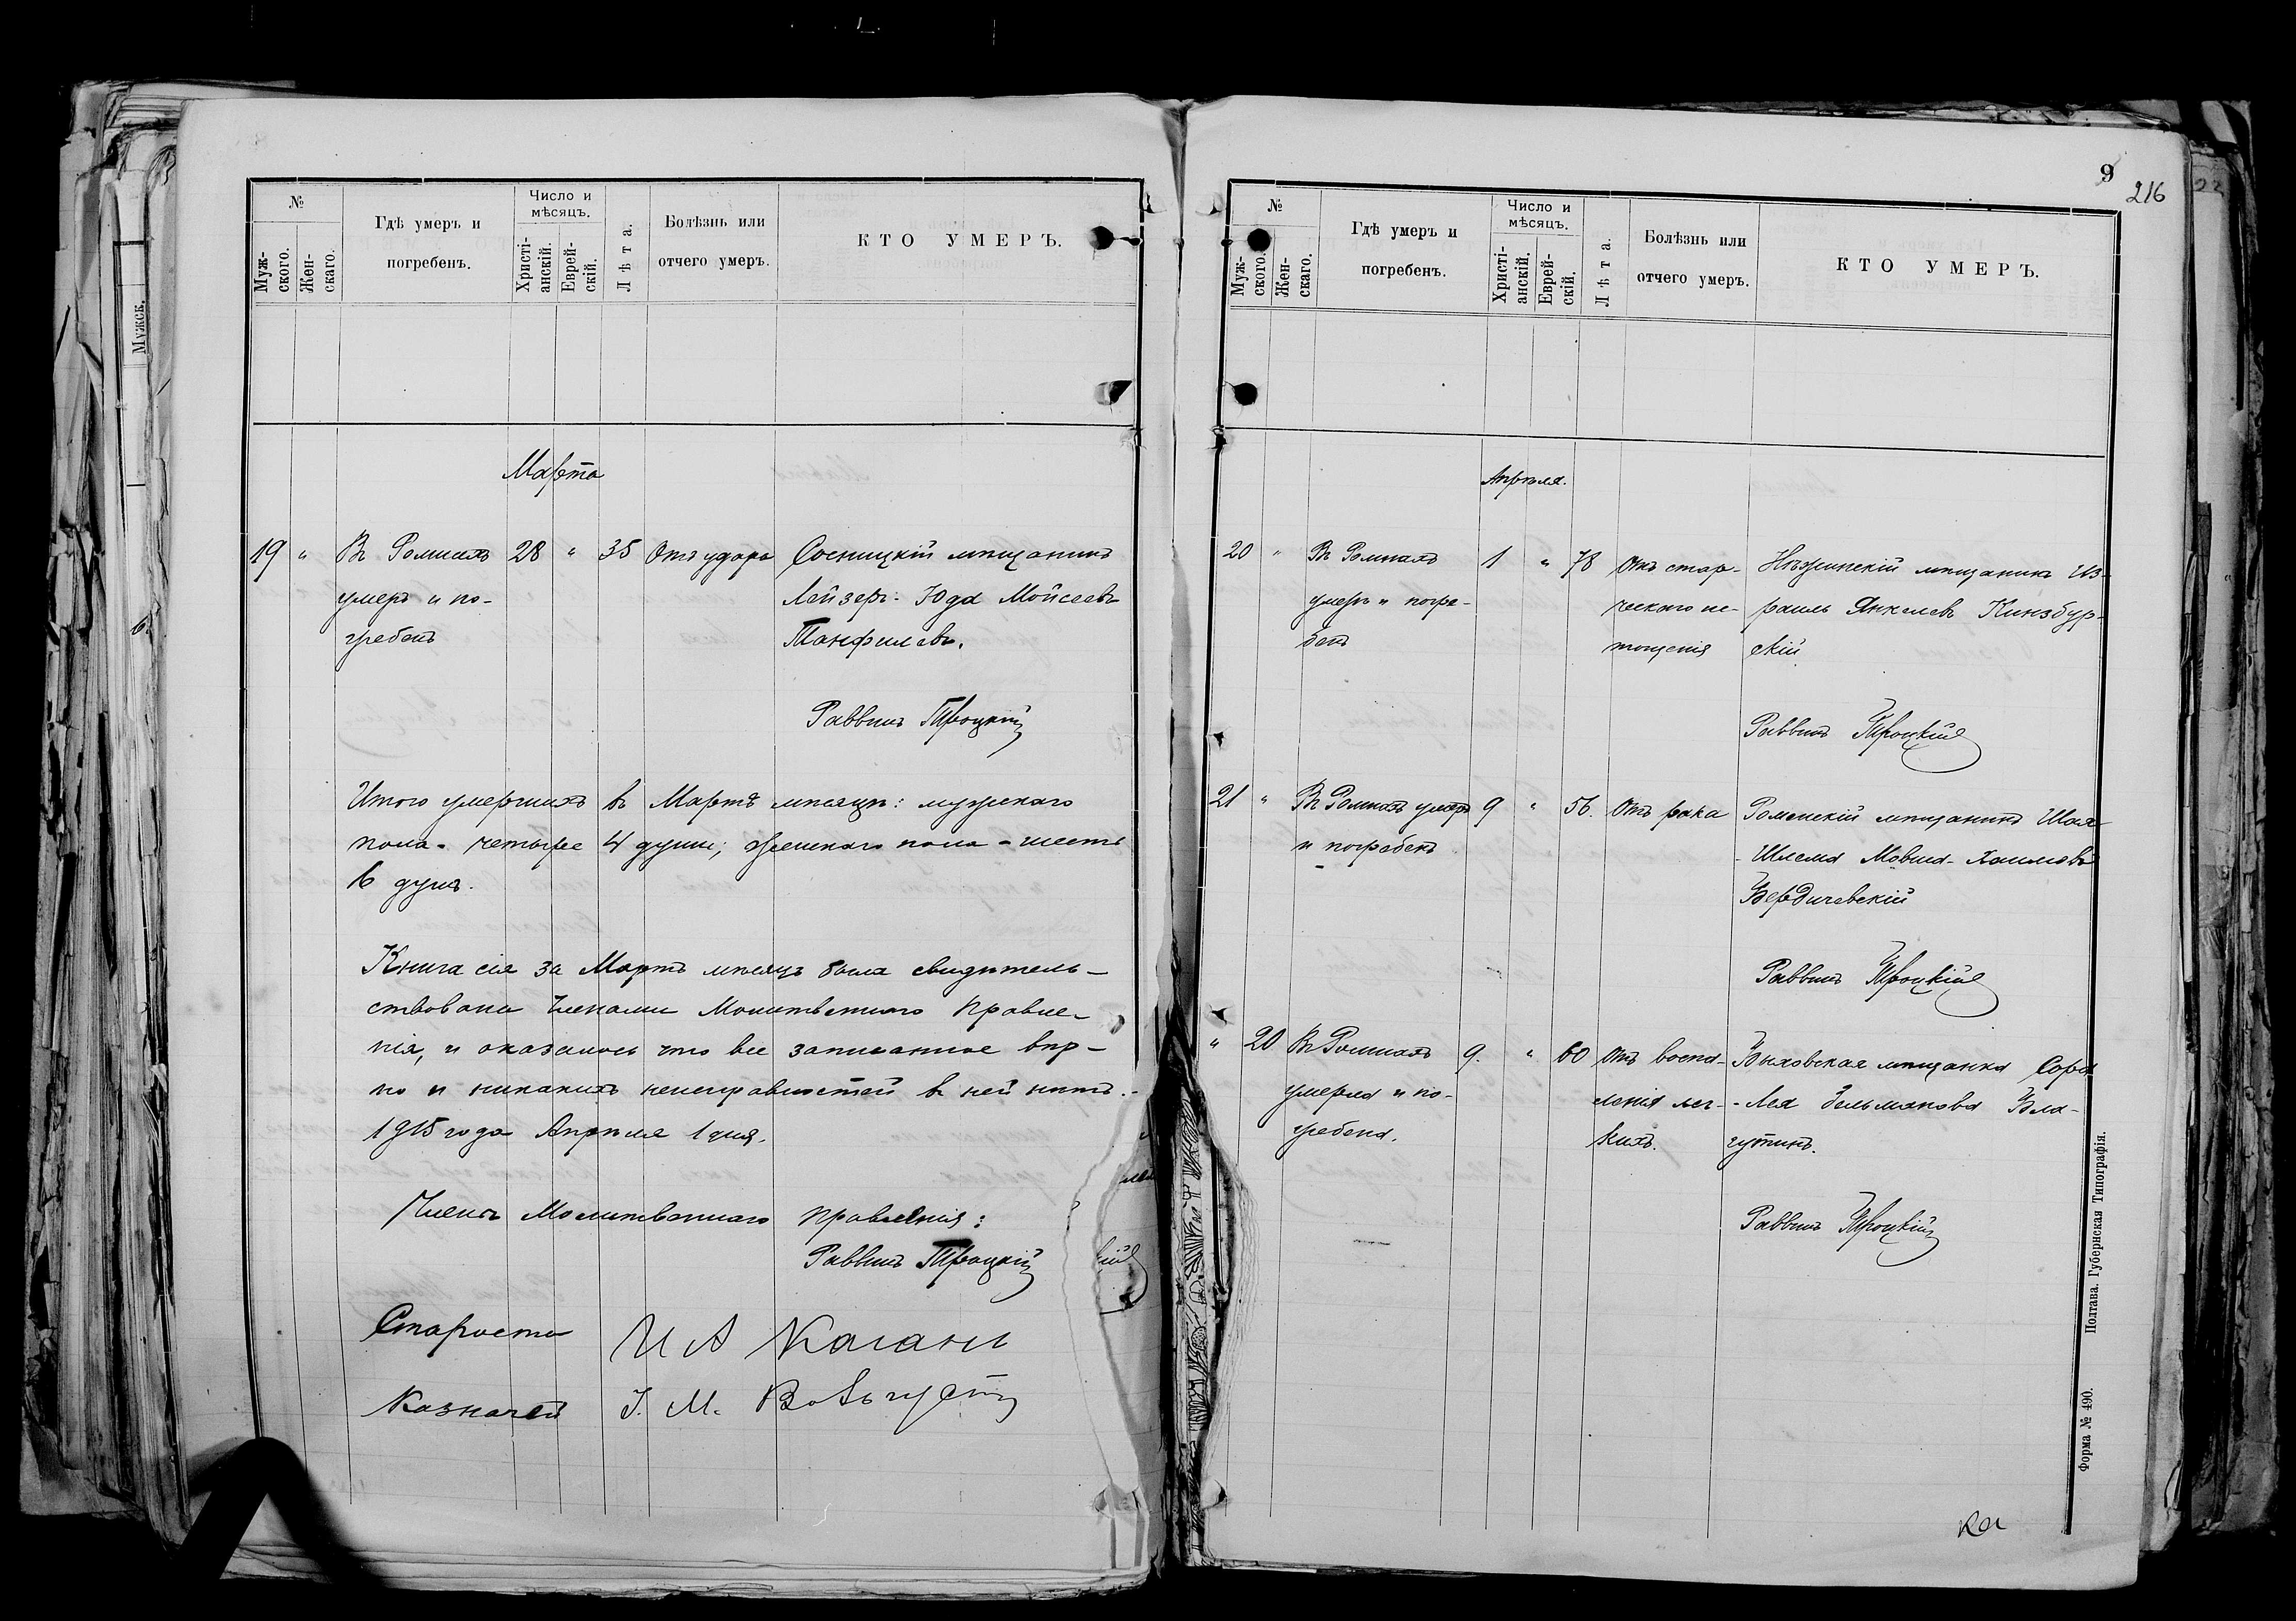 №
Муж-
ского.
Жен-
скаго.
Гдѣ умеръ и
погребенъ.
Число и
мѣсяцъ.
Христі-
анскій.
Еврей-
скій.
Лѣта.
Болѣзнь или
отчего умеръ.
КТО УМЕРЪ.
Марта
19 " Въ Ромнахъ 28 " 35 Отъ удара Сосницкій мѣщанинъ
умеръ и по- Лейзеръ-Юда Мойсеевъ
гребенъ Панфилевъ.
Раввинъ Троцкій
Итого умершихъ въ Мартѣ мѣсяцѣ: мужескаго
пола - четыре 4 души; женскаго пола - шесть
6 душъ.
Книга сія за Мартъ мѣсяцъ была свидѣтель-
ствована Членами Молитвеннаго Правле-
нія, и оказалось что все записанное вѣр-
но и никакихъ неисправностей въ ней нѣтъ.-
1915 года Апрѣля 1 дня.
Члены Молитвеннаго Правленія:
Раввинъ Троцкій
Староста И А Каганъ
Казначей І. М.
Мужск.
9
216
№
Муж-
ского.
Жен-
скаго.
Гдѣ умеръ и
погребенъ.
Число и
мѣсяцъ.
Христі-
анскій.
Еврей-
скій.
Лѣта.
Болѣзнь или
отчего умеръ.
КТО УМЕРЪ.
Апрѣля.
20 " Въ Ромнахъ 1 " 78 Отъ стар- Нѣжинскій мѣщанинъ Из-
умеръ и погре- ческаго ис- раиль Янкелевъ Кинзбур-
бенъ тощенія скій
Раввинъ Троцкій
21 " Въ Ромнахъ умеръ 9 " 56. Отъ рака Роменскій мѣщанинъ Шая-
и погребенъ - Шлема Мовша-Хаимовъ
Бердичевскій
Раввинъ Троцкій
" 20 Въ Ромнахъ 9. " 60 Отъ воспа- Быховская мѣщанка Сора
умерла и по- ленія лег- - Лея Зельманова Бла-
гребена. кихъ. гутинъ.
Раввинъ Троцкій
Полтава. Губернская Типографія.
Форма № 490.